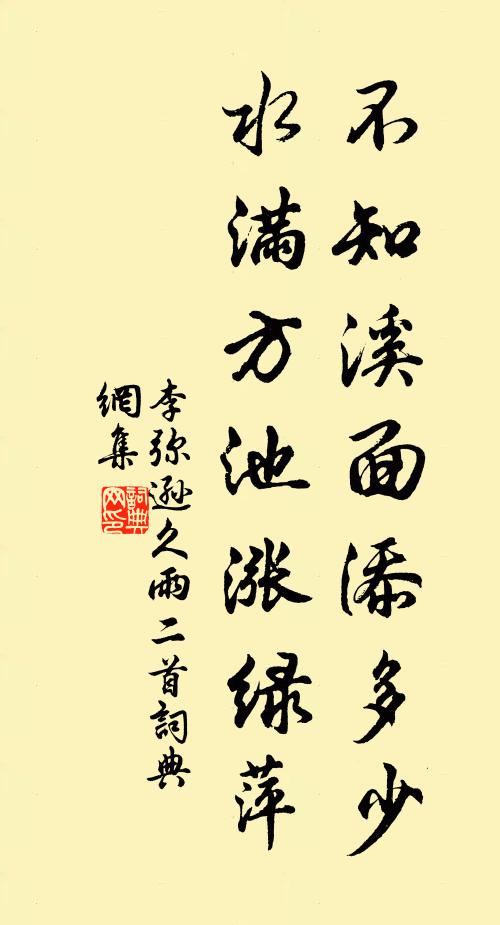 不知溪面添多少
水满方池涨绿萍
李弥逊久雨二首詞典
網集
詞典網印